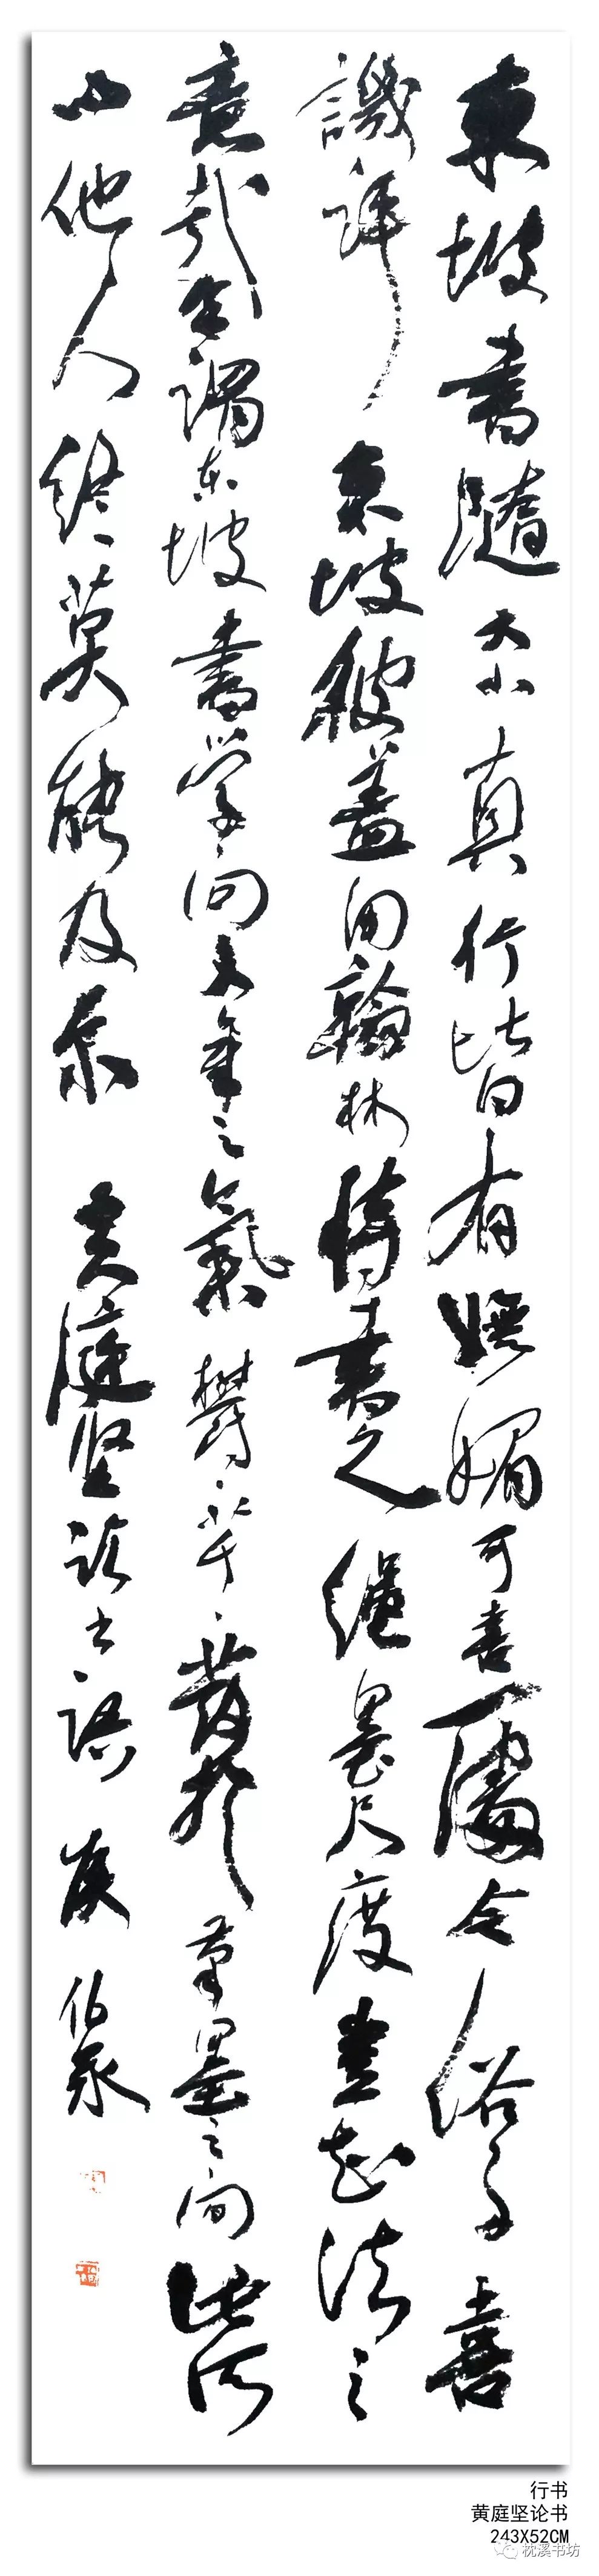 東坡書隨大小真行皆有嫵媚可喜處今俗子喜
譏評東坡彼蓋用翰林侍書之繩墨尺度豈知法之
意哉余謂東坡書學問文章之氣鬱鬱芊芊發於筆墨之間此所
以他人終莫能及尔 黄庭坚論书語
行书
黄庭坚论书
243X52CM
枕溪书坊